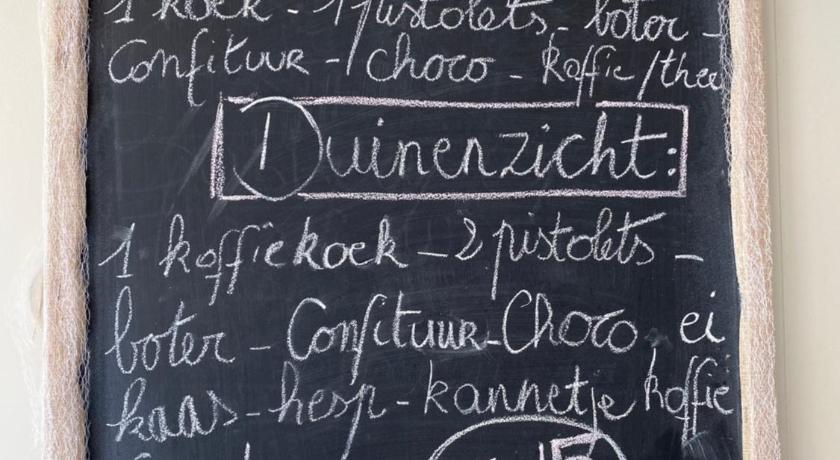 1 koek - 1 pistolets - boter -
Confituur - choco - koffie/thee
Duinenzicht:
1 koffiekoek - 2 pistolets -
boter - Confituur - Choco ei
kaas - hesp - kannetje koffie